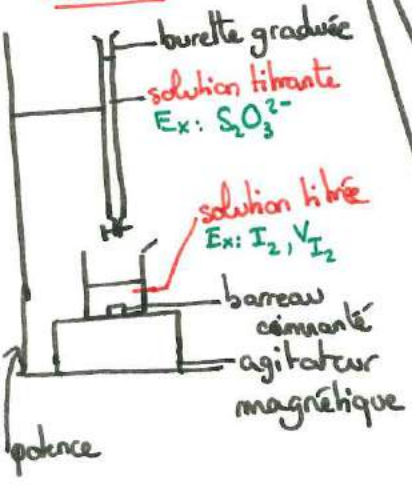 burette graduée
solution titrante
Ex: S₂O₃²⁻
solution titrée
Ex: I₂, V_I₂
barreau
aimanté
agitateur
magnétique
potence